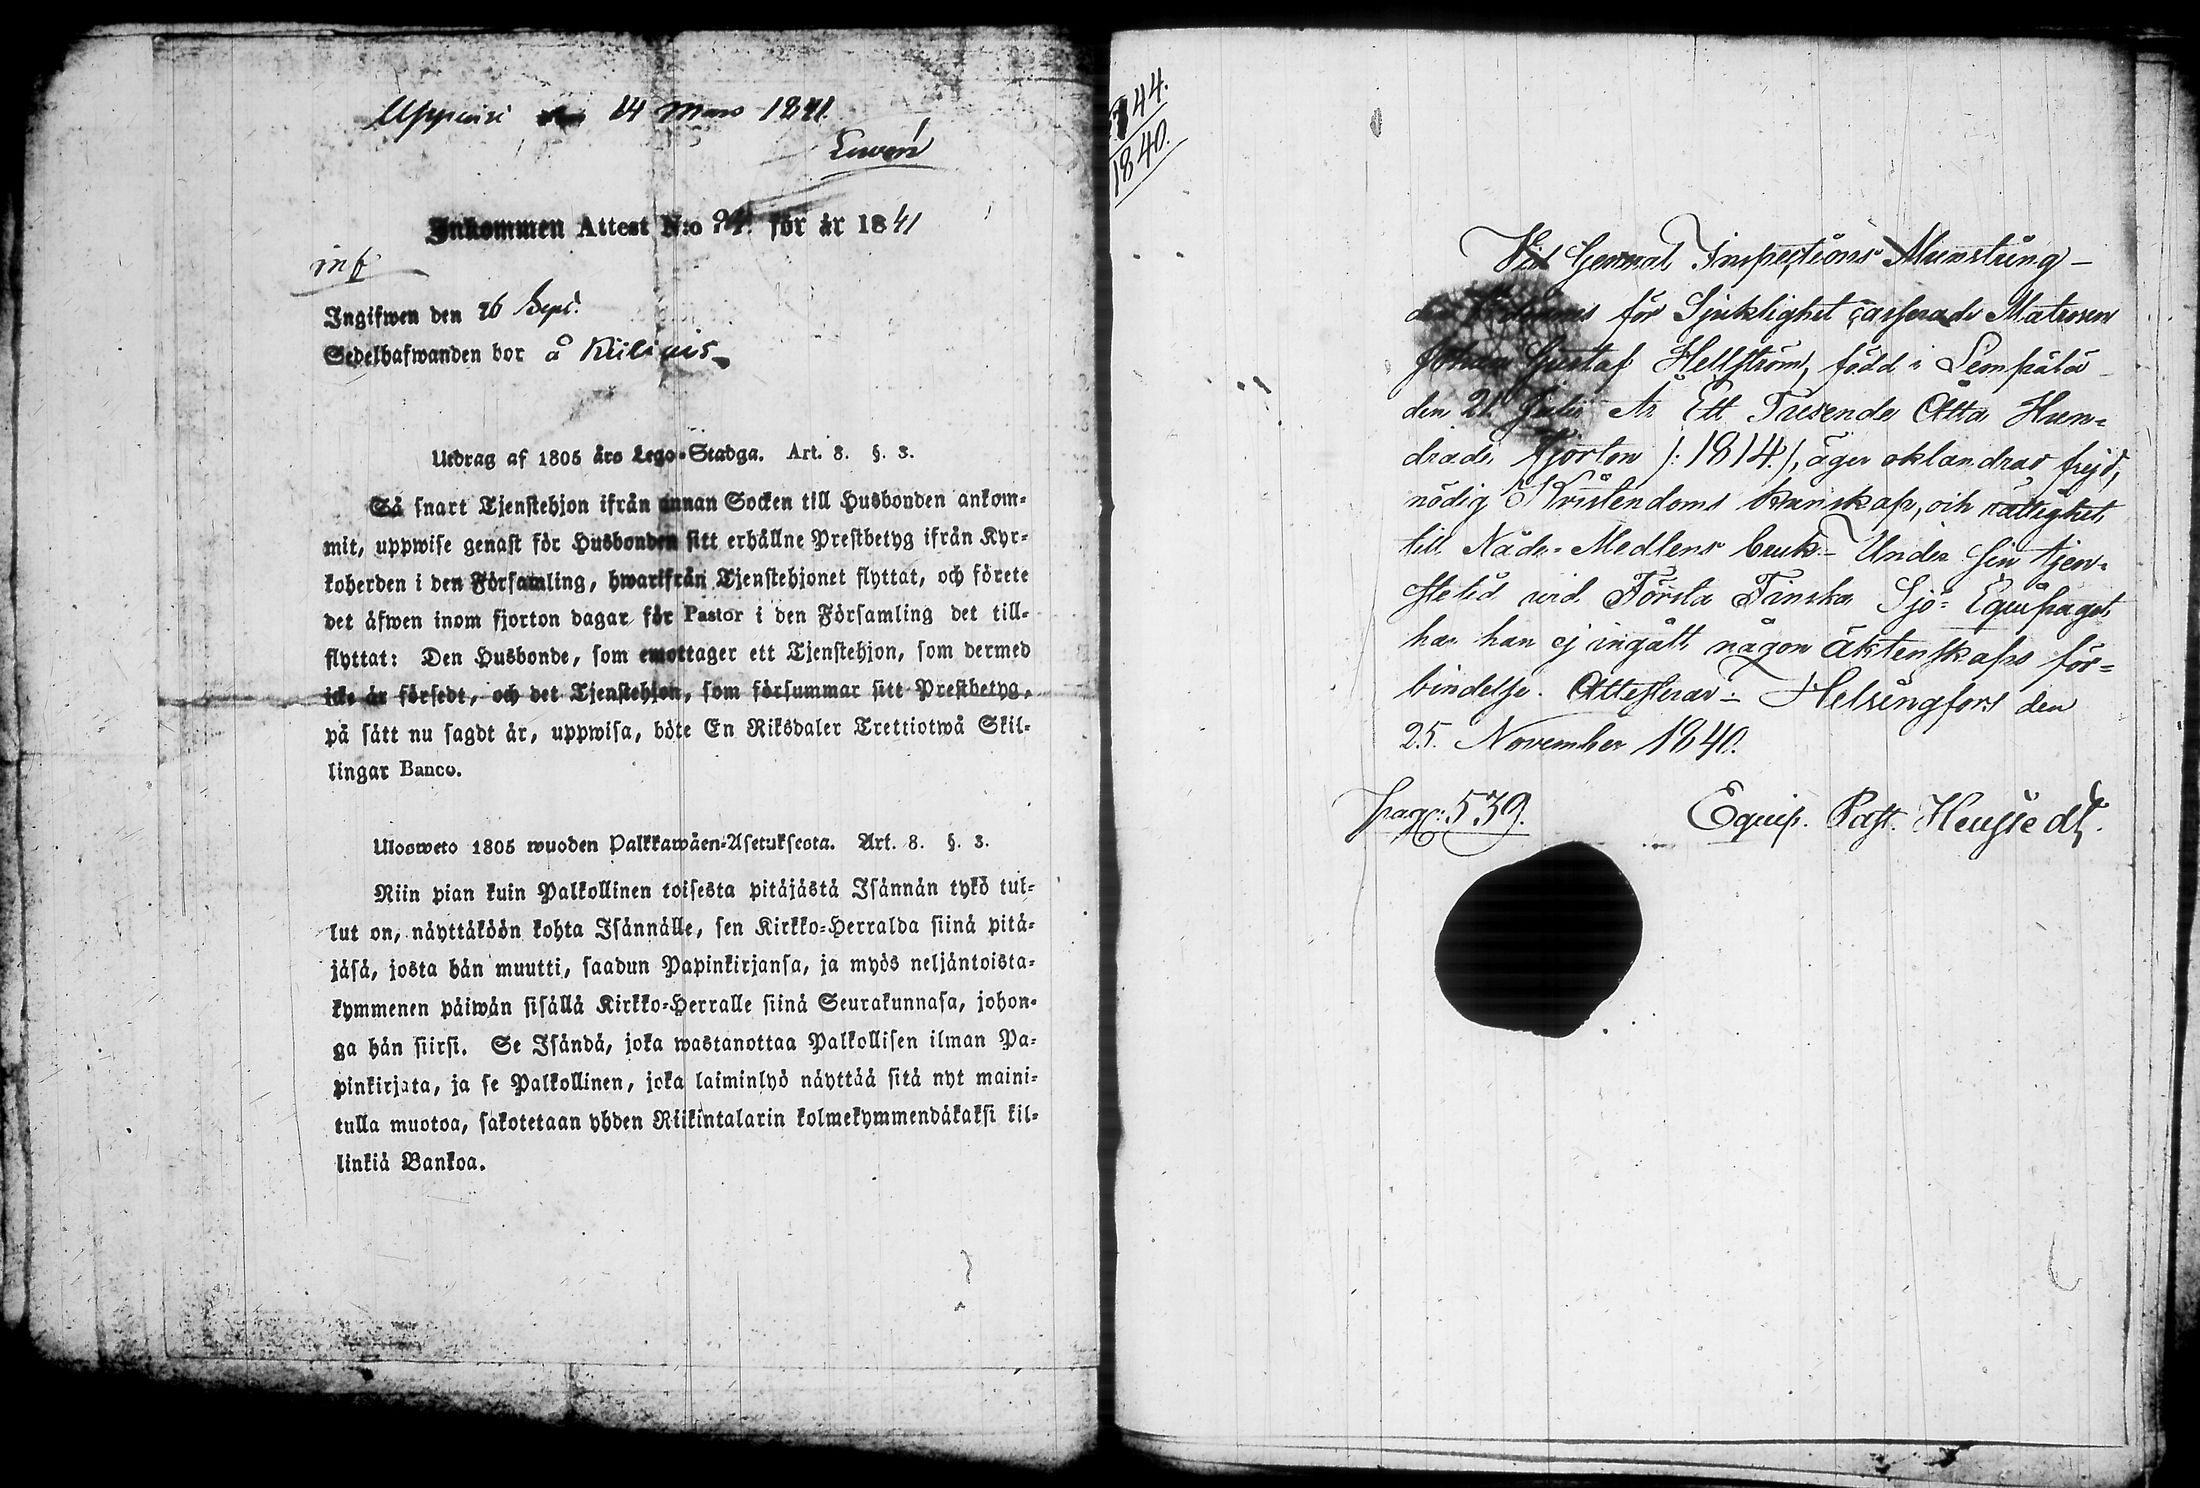 14 Mars 1841.
Inkommen Attest N:o 94. för år 1841
inf
Ingifwen den 26 Sept.
Sedelhafwanden bor å
Utdrag af 1805 års Lego-Stadga. Art. 8. §. 3.
Så snart Tjenstehjon ifrån annan Socken till Husbonden ankom-
mit, uppwise genast för Husbonden sitt erhållne Prestbetyg ifrån Kyr-
koherden i den Församling, hwarifrån Tjenstehjonet flyttat, och förete
det äfwen inom fjorton dagar för Pastor i den Församling det till-
flyttat: Den Husbonde, som emottager ett Tjenstehjon, som dermed
icke är försedt, och det Tjenstehjon, som försummar sitt Prestbetyg,
på sätt nu sagdt är, uppwisa, böte En Riksdaler Trettiotwå Skil-
lingar Banco.
Ulosweto 1805 wuoden Palkkawäen-Asetuksesta. Art. 8. §. 3.
Niin pian kuin Palkollinen toisesta pitäjästä Isännän tykö tul-
lut on, näyttäköön kohta Isännälle, sen Kirkko-Herralda siinä pitä-
jäsä, josta hän muutti, saadun Papinkirjansa, ja myös neljäntoista-
kymmenen päiwän sisällä Kirkko-Herralle siinä Seurakunnasa, johon-
ga hän siirsi. Se Isändä, joka wastanottaa Palkollisen ilman Pa-
pinkirjata, ja se Palkollinen, joka laiminlyö näyttää sitä nyt maini-
tulla muotoa, sakotetaan yhden Riikintalarin kolmekymmendäkaksi kil-
linkiä Bankoa.
844.
1840.
Vid General Inspections Munstring
för Sjuklighet casserade Matrosen
Johan Gustaf Hellström, född i Lempälä
den 21 Julii År Ett Tusende Åtta Hun-
drade fjorton /: 1814 :/, äger oklandrad frejd,
nödig Kristendoms kunskap, och rättighet
till Nåde-Medlens bruk. Under sin tjen-
stetid vid Första Finska Sjö-Equipaget
har han ej ingått någon äktenskaps för-
bindelse. Attesterar Helsingfors den
25. November 1840.
pag: 539.
Equip. Past.